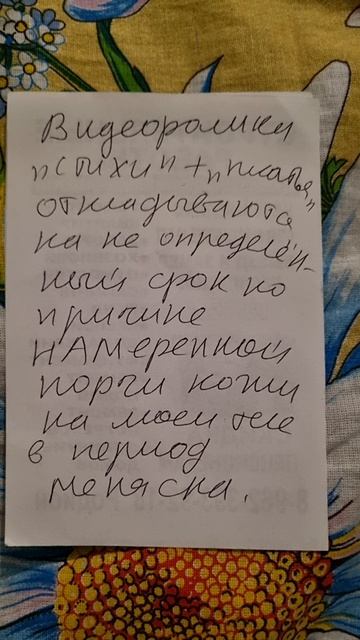 Видеоролики
"стихи" + "платья"
откладываются
на не определён-
ный срок по
причине
НАМеренной
порчи кожи
на моем теле
в период
меня сна.